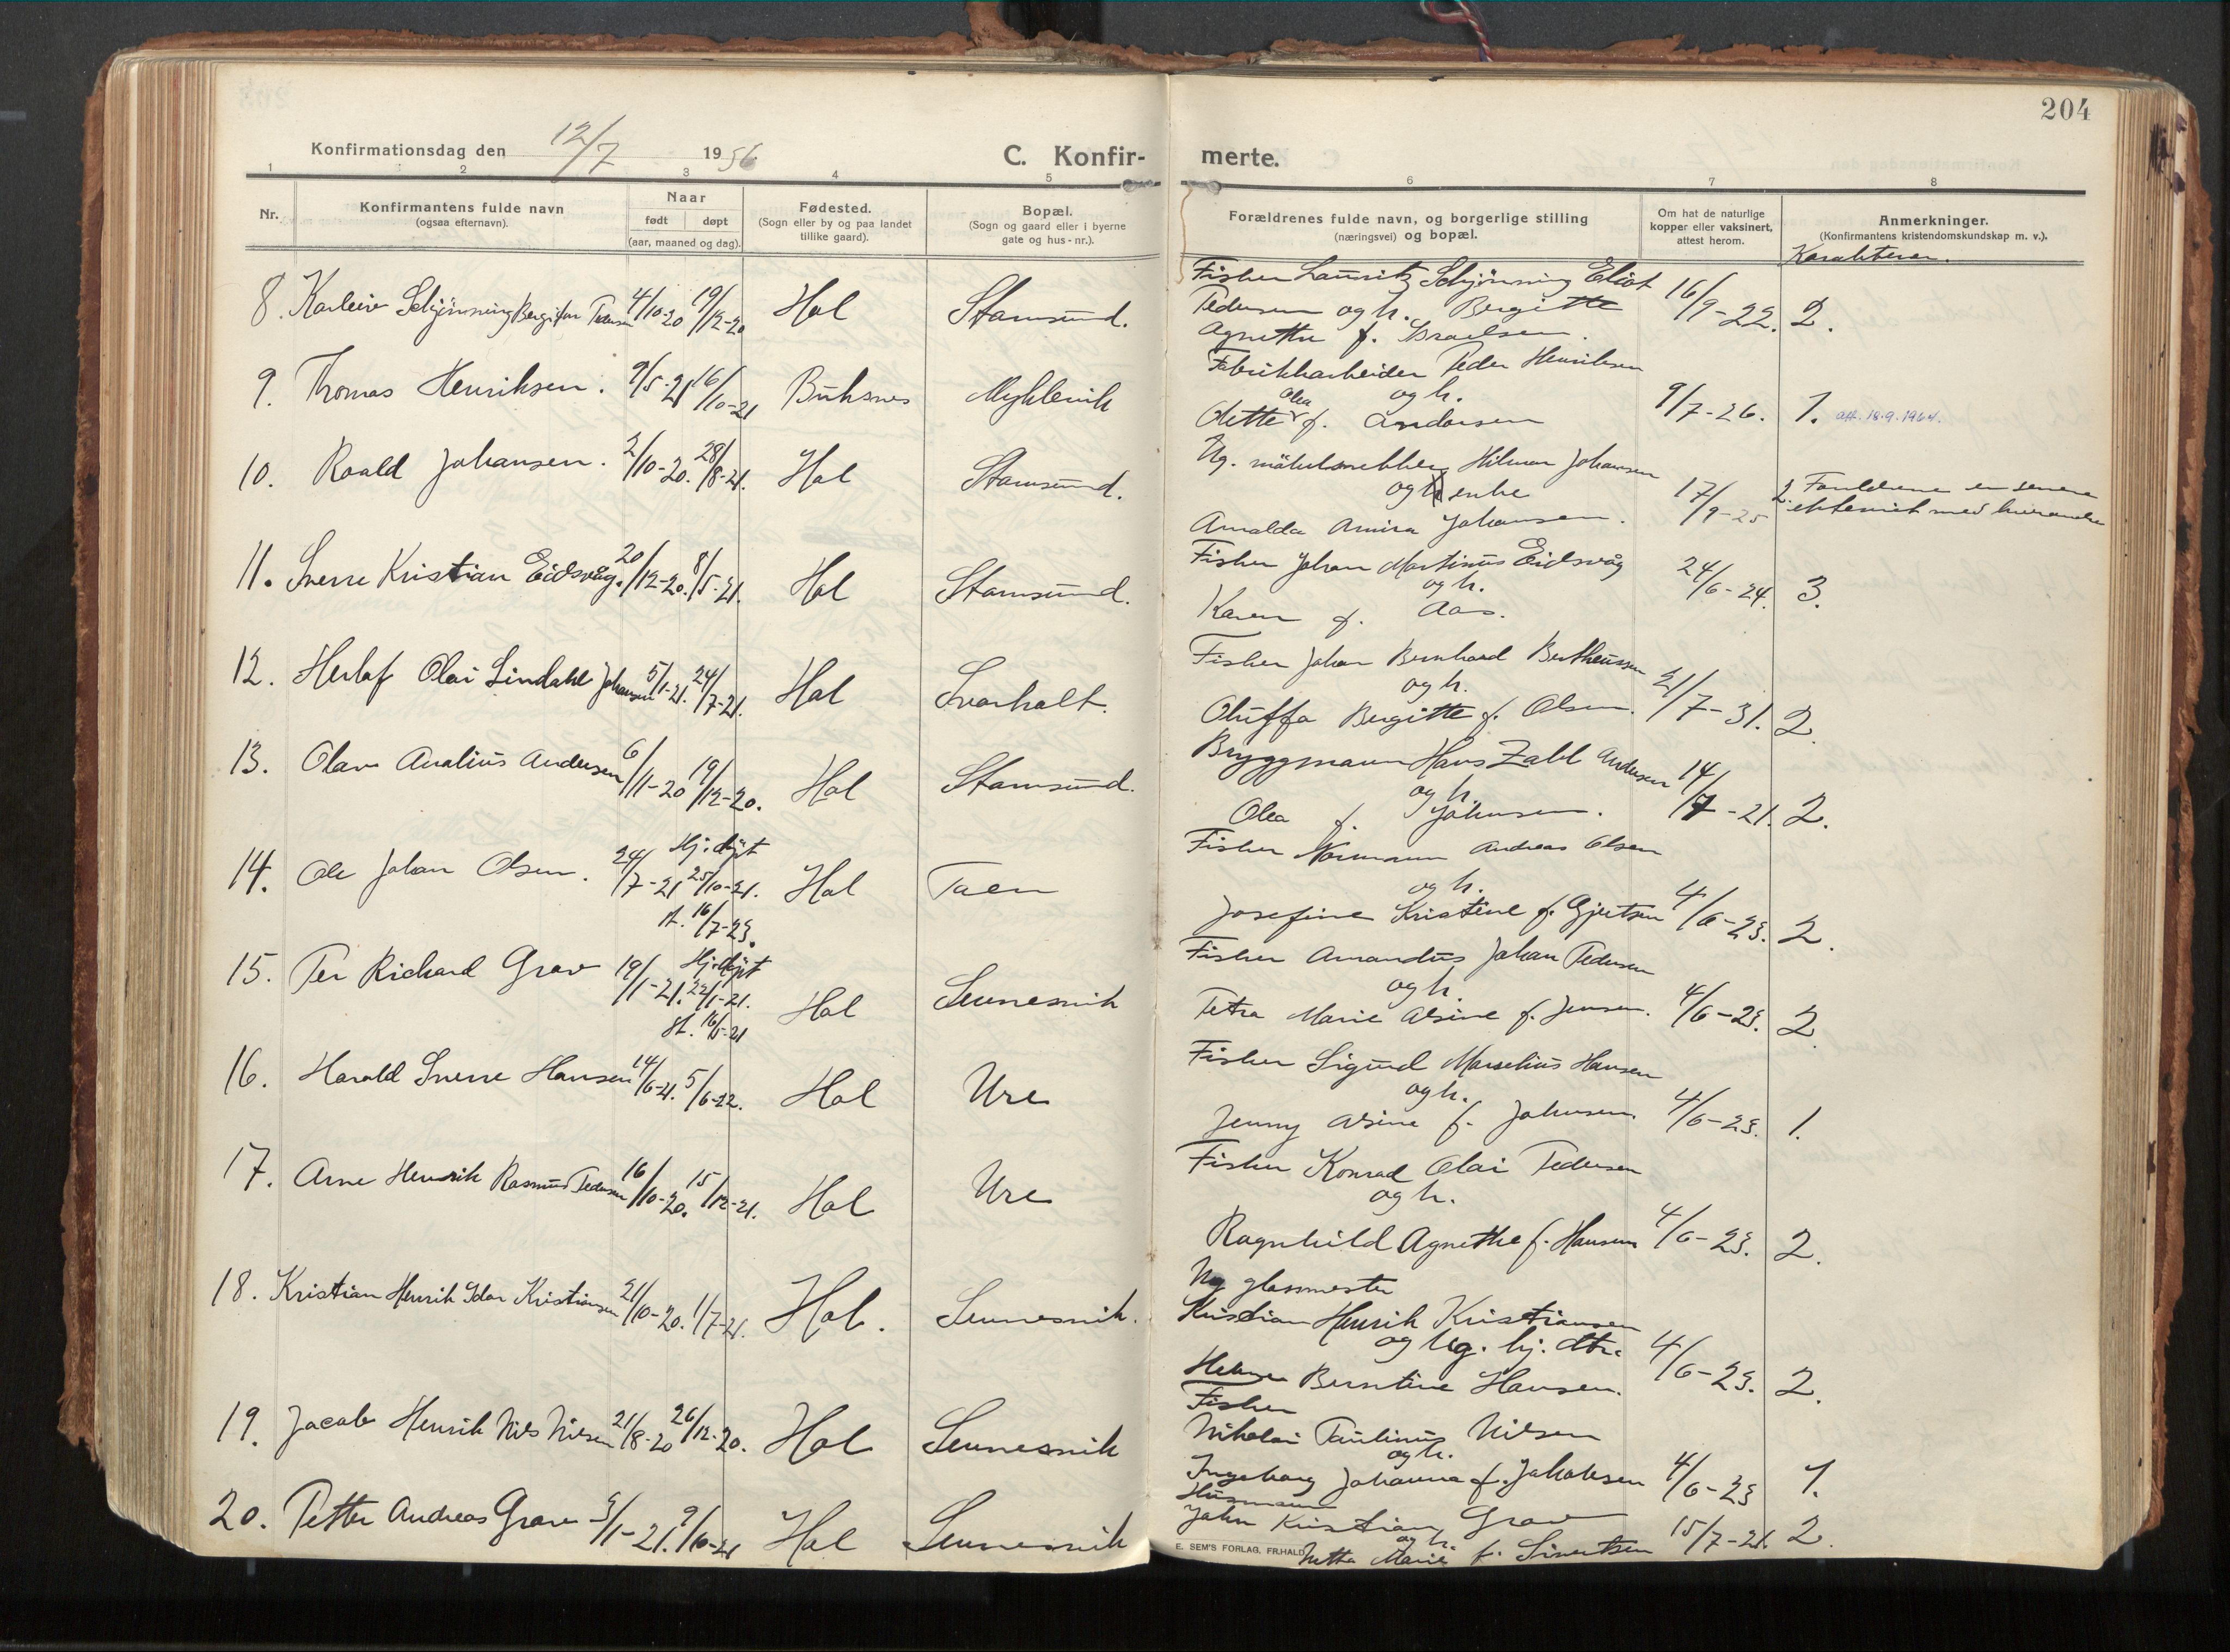 204
Konfirmationsdag den 12/7 1956
C. Konfir-
merte.
1 2 3 4 5 6 7 8
Nr.
Konfirmantens fulde navn
(ogsaa efternavn).
Naar
født døpt
(aar, maaned og dag).
Fødested.
(Sogn eller by og paa landet
tillike gaard).
Bopæl.
(Sogn og gaard eller i byerne
gate og hus-nr.).
Forældrenes fulde navn, og borgerlige stilling
(næringsvei) og bopæl.
Om hat de naturlige
kopper eller vaksinert,
attest herom.
Anmerkninger.
(Konfirmantens kristendomskundskap m. v.).
Karakterer.
8. Schjönning Pedersen 4/10-20 19/12-20 Hol Stamsund.
Fisker Lauritz Schjönning Eliot
Pedersen og h. Bergitte
Agnethe f. Israelsen.
16/9-22. 2.
9. Thomas Henriksen. 9/5-21 16/10-21 Buksnes Myklevik
Fabrikkarbeider Peder Henriksen
og h.
Olea
Dette f. Andorsen
9/7-26. 1. att. 18.9.1964.
10. Roald Johansen. 2/10-20. 28/8-21. Hol Stamsund.
Ug. målsnekker Hilmar Johansen
og enke
Arnalda Amira Johansen.
17/9-25 2. Foreldrene er senere
ekteviet med hverandre
11. Sverre Kristian Eidsvåg. 20/12-20. 8/5-21. Hol Stamsund.
Fisker Johan Martinus Eidsvåg
og h.
Karen f. Aas.
24/6-24. 3.
12. Herlof Olai Lindahl Johansen 5/1-21. 24/7-21. Hol Svarholt.
Fisker Johan Bernhard Bertheussen
og h.
Oluffa Bergitte f. Olsen.
21/7-31. 2.
13. Olav Analius Andersen 6/11-20 19/12-20. Hol Stamsund.
Bryggmann Hans Zahl Andersen
og h.
Olea f. Johnsen.
14/7-21. 2.
14. Ole Johan Olsen. 24/7-21 Hj. døpt 25/10-21. st. 16/7-23. Hol Taen
Fisker Normann Andreas Olsen
og h.
Josefine Kristine f. Gjertsen
4/6-23. 2.
15. Per Richard Grav 19/1-21. Hj. døpt 22/1-21. st. 16/5-21 Hol Sennesvik
Fisker Amandus Johan Pedersen
og h.
Petra Marie Alsine f. Jensen.
4/6-23. 2
16. Harald Sverre Hansen 14/6-21. 5/6-22. Hol Ure
Fisker Sigurd Marselius Hansen
og h.
Jenny Alsine f. Johnsen.
4/6-23. 1.
17. Arne Henrik Rasmus Pedersen 16/10-20. 15/12-21. Hol Ure
Fisker Konrad Olai Pedersen
og h.
Ragnhild Agnethe f. Hansen
4/6-23. 2.
18. Kristian Henrik Idar Kristiansen 21/10-20. 1/7-21. Hol. Sennesvik.
Ug glassmester
Kristian Henrik Kristiansen
og ug. hj. dtr.
Helmine Berntine Hansen.
4/6-23. 2.
19. Jacob Henrik Nils Nilsen 21/8-20 26/12-20. Hol Sennesvik
Fisker
Nikolai Paulinus Nilsen
og h.
Ingeborg Johanna f. Jakobsen
4/6-23 1.
20. Petter Andreas Grav 3/1-21. 9/10-21 Hol Sennesvik
Husmann
John Kristian Grav
og h.
Netta Marie f. Sivertsen
15/7-21. 2.
E. SEM'S FORLAG, FR.HALD